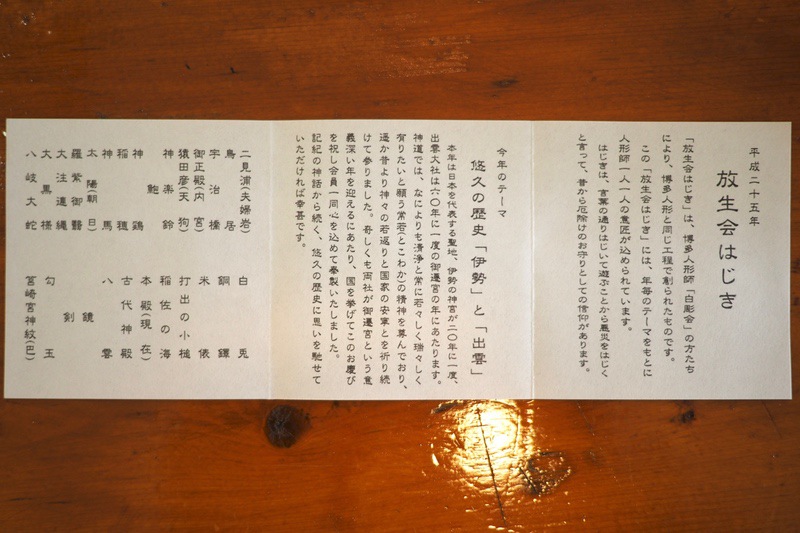 平成二十五年
放生会はじき
「放生会はじき」は、博多人形師「白彫会」の方たち
により、博多人形と同じ工程で創られたものです。
この「放生会はじき」には、年毎のテーマをもとに
人形師一人一人の意匠が込められています。
はじきは、言葉の通りはじいて遊ぶことから悪災をはじく
と言って、昔から厄除けのお守りとしての信仰があります。
今年のテーマ
悠久の歴史「伊勢」と「出雲」
本年は日本を代表する聖地、伊勢の神宮が二〇年に一度、
出雲大社は六〇年に一度の御遷宮の年にあたります。
神道では、なによりも清浄と常に若々しく瑞々しく
有りたいと願う常若(とこわか)の精神を尊んでおり、
遥か昔より神々の若返りと国家の安寧とを祈り続
けて参りました。奇しくも両社が御遷宮という意
義深い年を迎えるにあたり、国を挙げてこのお慶び
を祝し会員一同心を込めて奉製いたしました。
記紀の神話から続く、悠久の歴史に思いを馳せて
いただければ幸甚です。
二見浦(夫婦岩)
鳥居
宇治橋
御正殿(内宮)
猿田彦(天狗)
神楽鈴
鮑
神鶏
稲穂
神馬
太陽(朝日)
羅紫御翳
大注連縄
大黒様
八岐大蛇
白兎
銅鐸
米俵
打出の小槌
稲佐の海
本殿(現在)
古代神殿
八雲
鏡
剣
勾玉
筥崎宮神紋(巴)